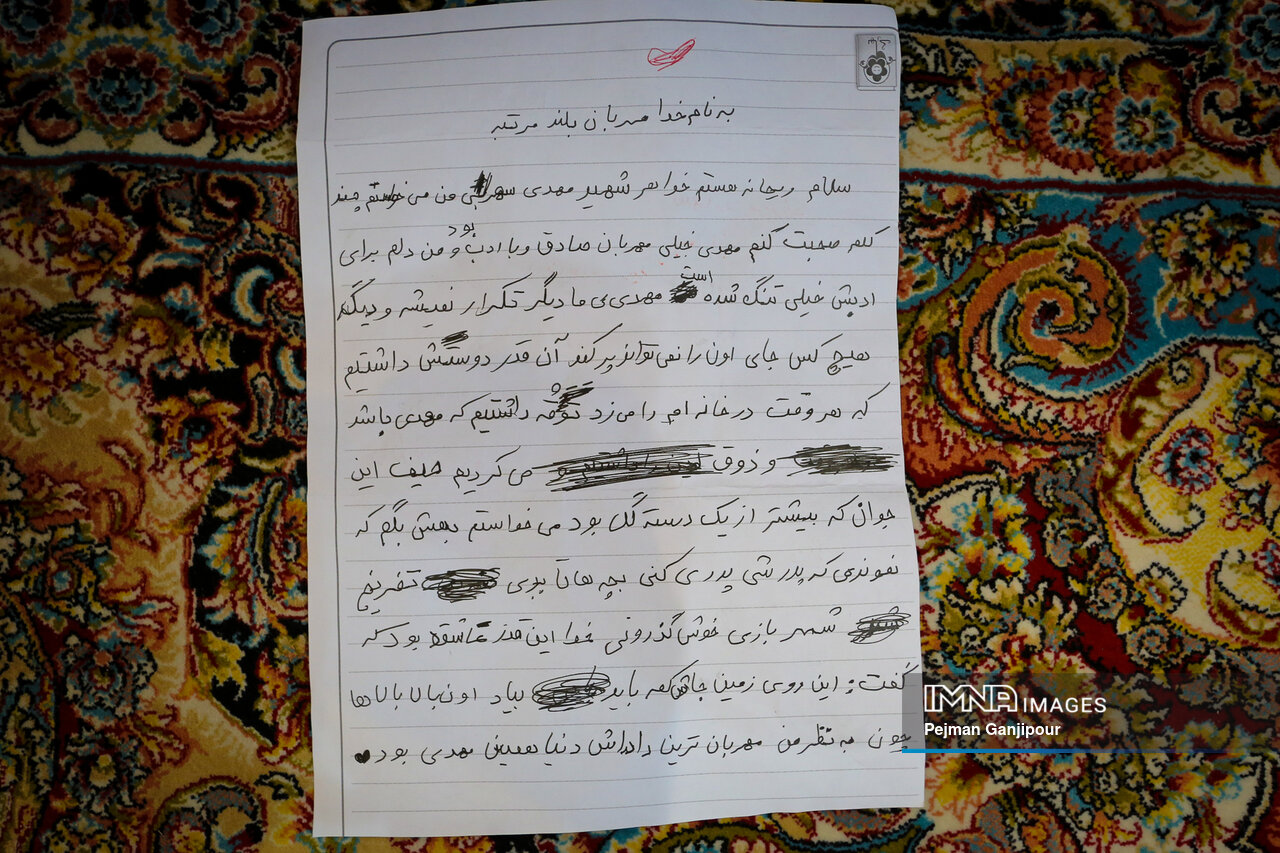 به نام خدا مهربان بلند مرتبه
سلام ریحانه هستم خواهر شهید مهدی من می خواستم چند
کلمه صحبت کنم مهدی خیلی مهربان صادق و با ادب بود و من دلم برای
ادبش خیلی تنگ شده است مهدی ی ما دیگر تکرار نمیشه و دیگه
هیچ کس جای اون را نمی تواند پر کند آن قدر دوستش داشتیم
که هر وقت در خانه ام را می زد داشتیم که مهدی باشد
و ذوق می کردیم حیف این
جوان که بیشتر از یک دسته گل بود می خواستم بهش بگم که
نموندی که پدر شی پدری کنی بچه هاتا ببری تفریح
شهر بازی خوش گذرونی خدا این قدر عاشقه بود که
گفت: این روی زمین جاش کمه باید بیاد اون بالا بالاها
چون به نظر من مهربان ترین داداش دنیا همین مهدی بود
IMNA IMAGES
Pejman Ganjipour